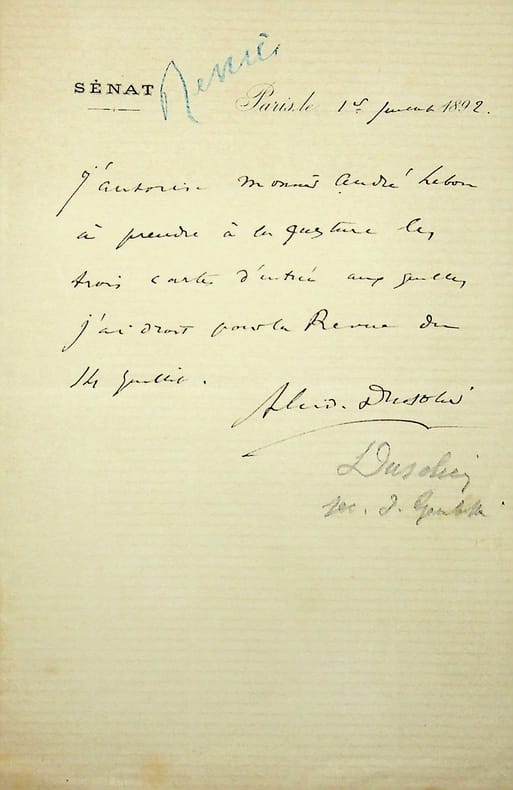 SÉNAT
Remis
Paris, le 1er juillet 1892.
j'autorise Monsieur André Lebon
à prendre à la questure les
trois cartes d'entrée auxquelles
j'ai droit pour la Revue du
14 Juillet.
Alcid. Dusolier
Dusolier
sec. d. Gambetta